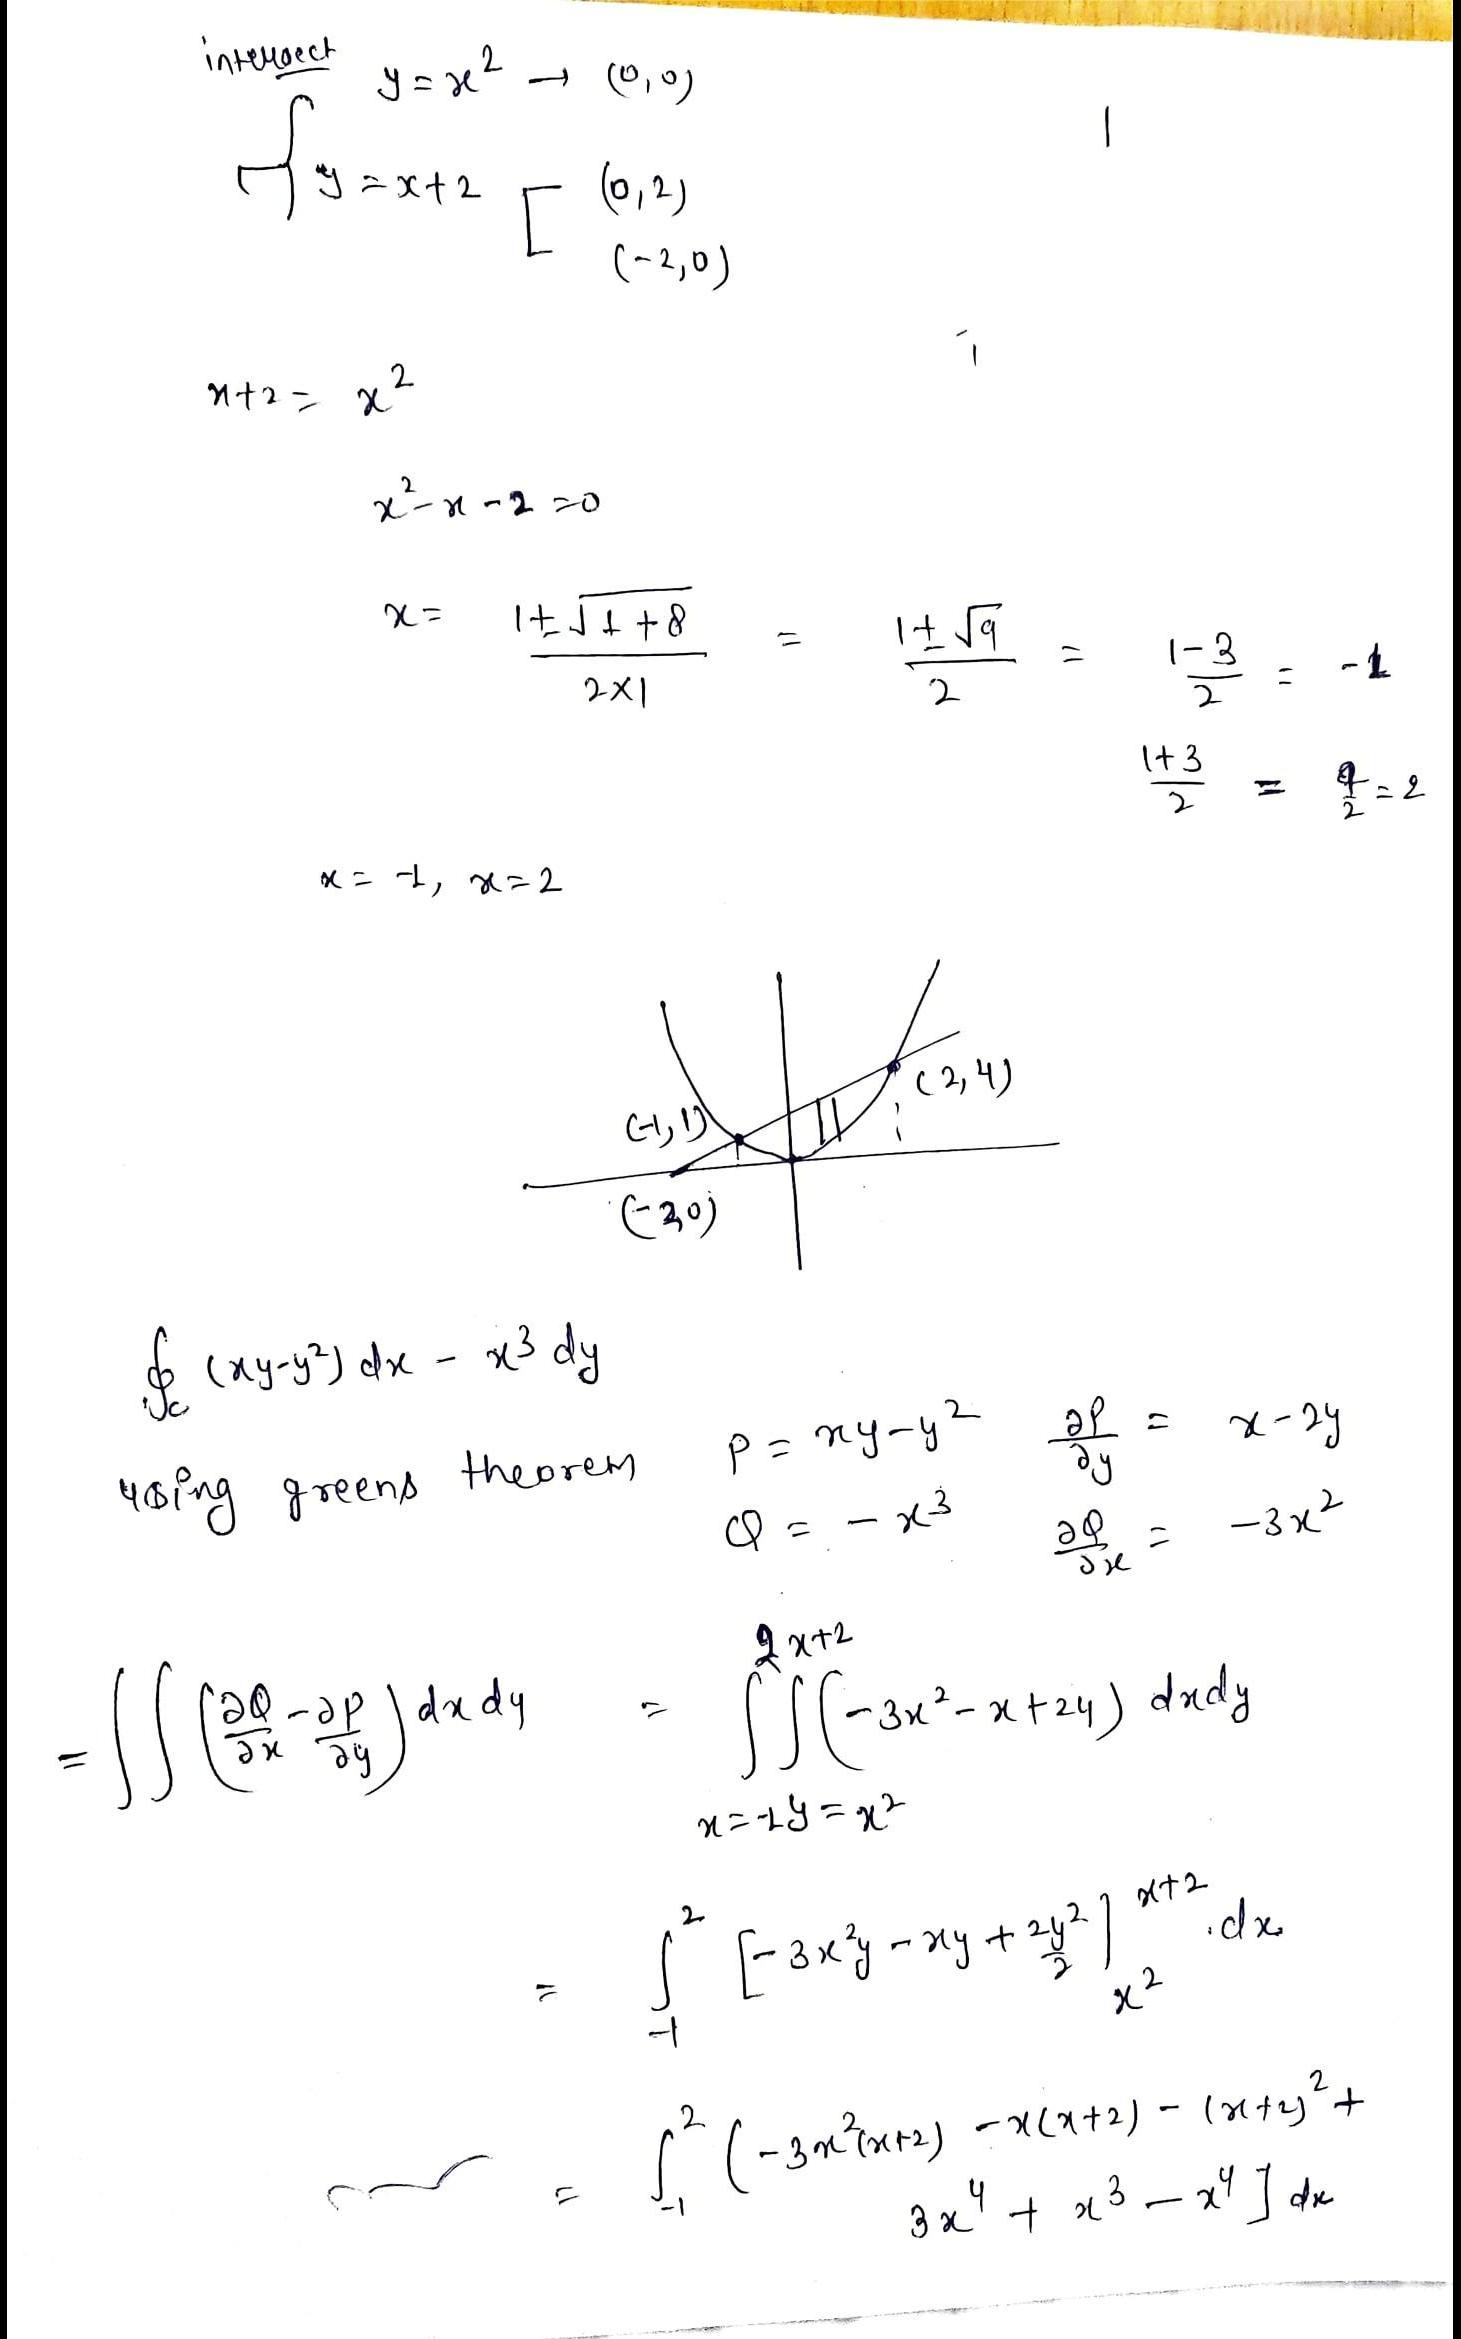 intersect y = x² → (0,0)
y = x+2 [ (0,2)
(-2,0)
x+2 = x²
x² - x - 2 = 0
x = (1 ± √(1+8))/(2×1) = (1 ± √9)/2 = (1-3)/2 = -1
(1+3)/2 = 4/2 = 2
x = -1, x = 2
(2,4)
(-1,1)
(-2,0)
∮c (xy-y²) dx - x³ dy
using greens theorem P = xy-y² ∂P/∂y = x-2y
Q = -x³ ∂Q/∂x = -3x²
= ∫∫ (∂Q/∂x - ∂P/∂y) dx dy = ∫_{x=-1}^{2} ∫_{y=x²}^{x+2} (-3x² - x + 2y) dxdy
= ∫_{-1}^{2} [-3x²y - xy + 2y²/2]_{x²}^{x+2} .dx.
= ∫_{-1}^{2} (-3x²(x+2) - x(x+2) - (x+2)² +
3x⁴ + x³ - x⁴] dx